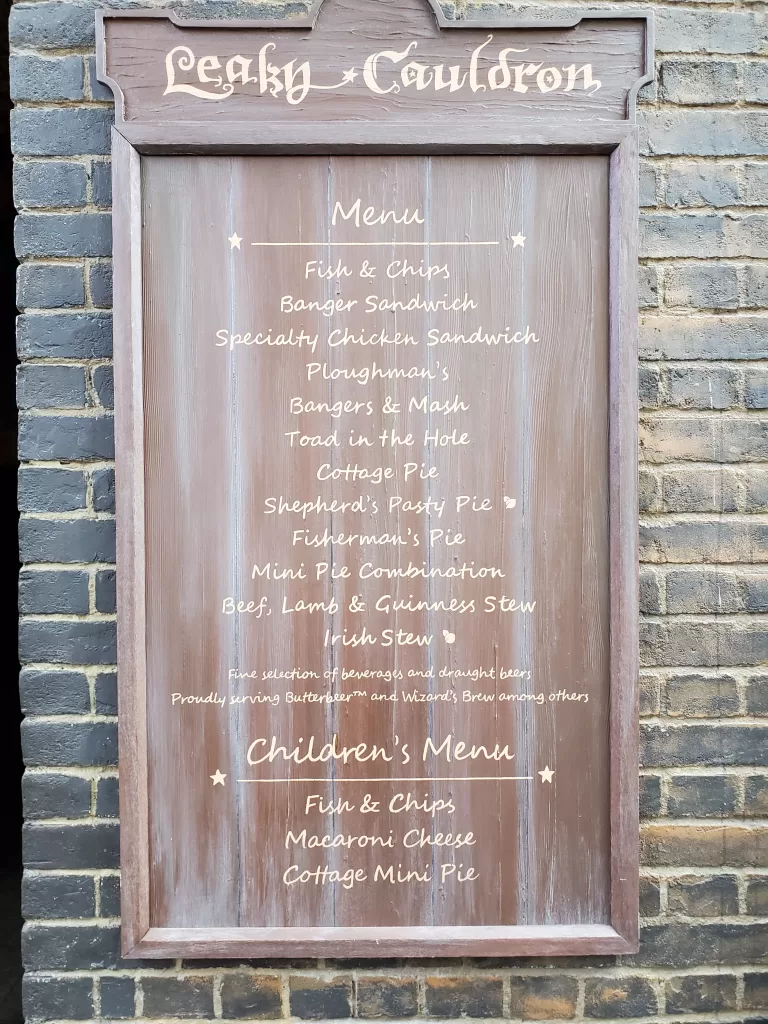 Leaky Cauldron
Menu
Fish & Chips
Banger Sandwich
Specialty Chicken Sandwich
Ploughman's
Bangers & Mash
Toad in the Hole
Cottage Pie
Shepherd's Pasty Pie
Fisherman's Pie
Mini Pie Combination
Beef, Lamb & Guinness Stew
Irish Stew
Fine selection of beverages and draught beers
Proudly serving Butterbeer™ and Wizard's Brew among others
Children's Menu
Fish & Chips
Macaroni Cheese
Cottage Mini Pie